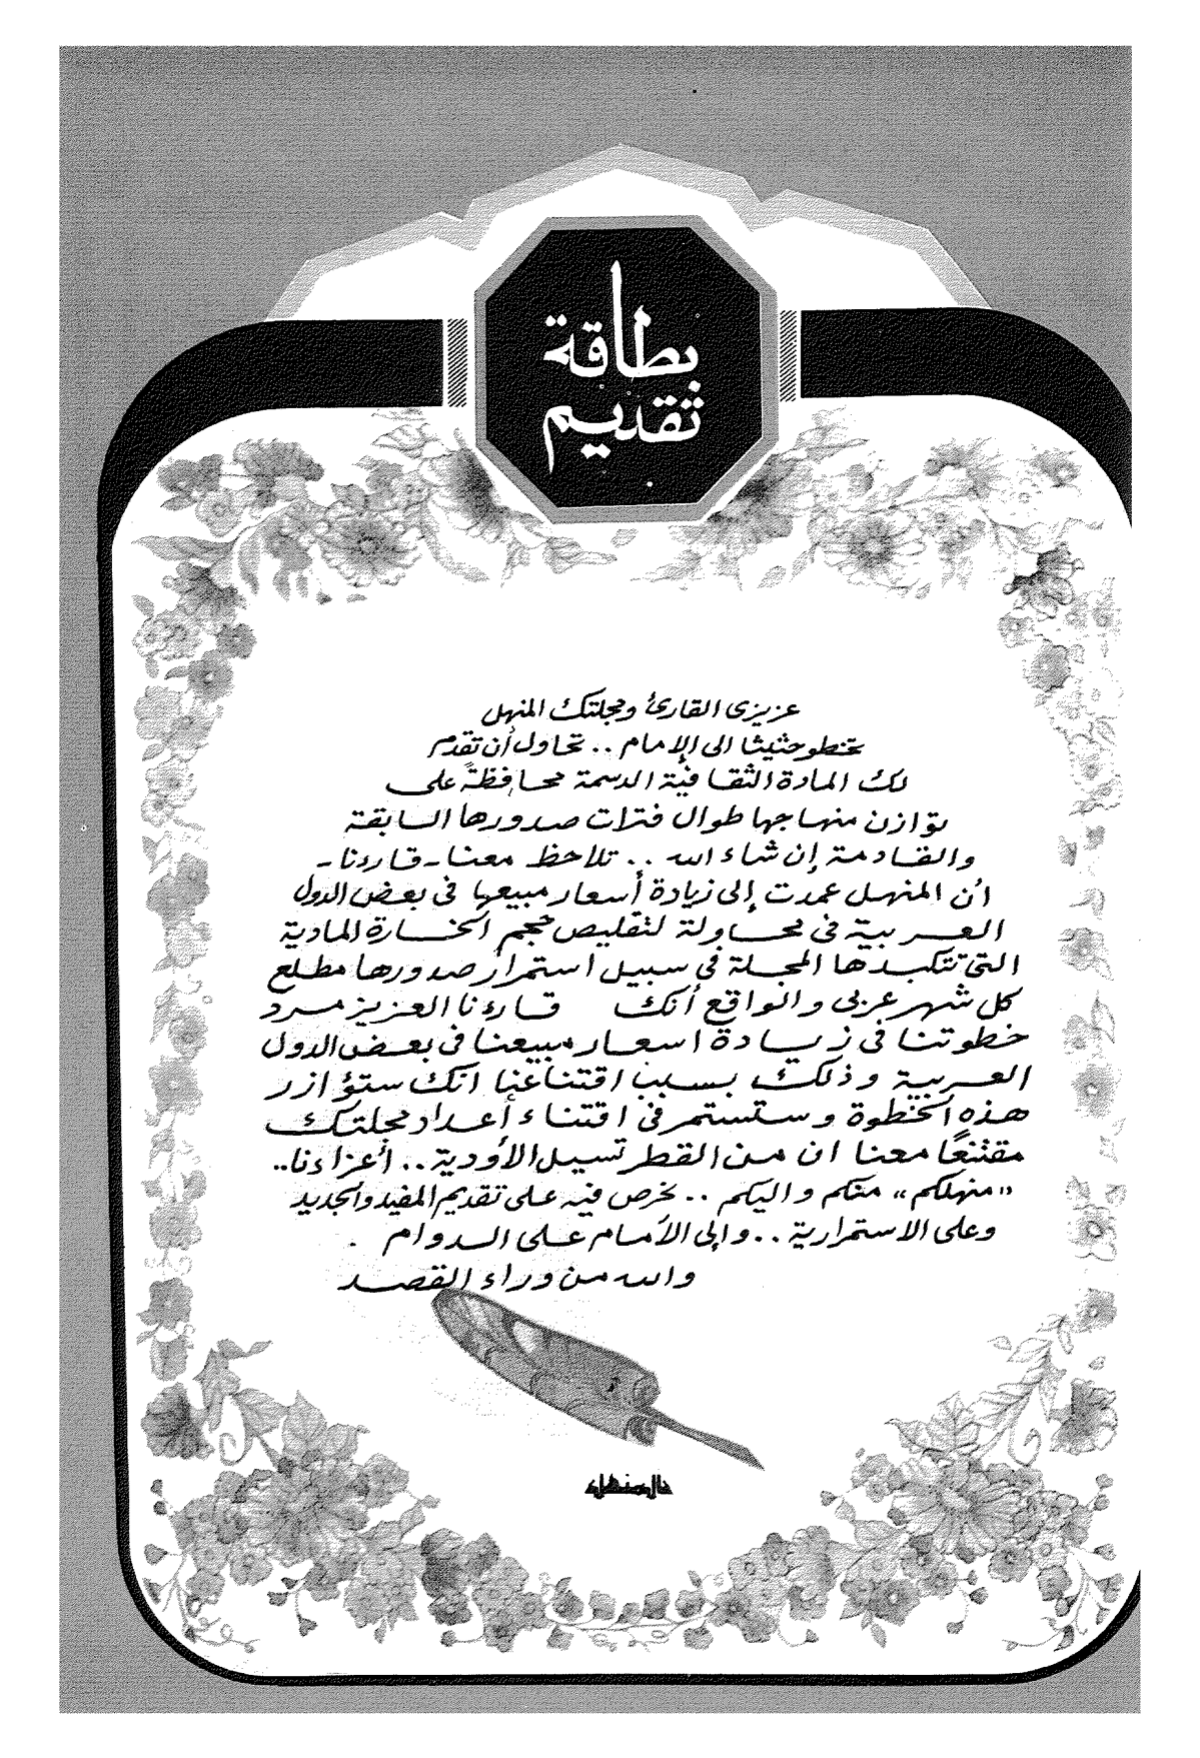 بطاقة
تقديم
عزيزى القارئ ومجلتك المنهل
تخطو حثيثا الى الإمام .. تحاول أن تقدم
لك المادة الثقافية الدسمة محافظةً على
توازن منهاجها طوال فترات صدورها السابقة
والقادمة إن شاء الله .. تلاحظ معنا - قارءنا -
أن المنهل عمدت إلى زيادة أسعار مبيعها فى بعض الدول
العربية فى محاولة لتقليص حجم الخسارة المادية
التى تتكبدها المجلة فى سبيل استمرار صدورها مطلع
كل شهر عربى والواقع أنك قارءنا العزيز مرد
خطوتنا فى زيادة اسعار مبيعنا فى بعض الدول
العربية وذلك بسبب اقتناعنا انك ستؤازر
هذه الخطوة وستستمر فى اقتناء أعداد مجلتك
مقتنعًا معنا ان من القطر تسيل الأودية .. أعزاءنا ..
«منهلكم» منكم واليكم .. نحرص فيه على تقديم المفيد والجديد
وعلى الاستمرارية .. وإلى الأمام على الدوام .
والله من وراء القصد